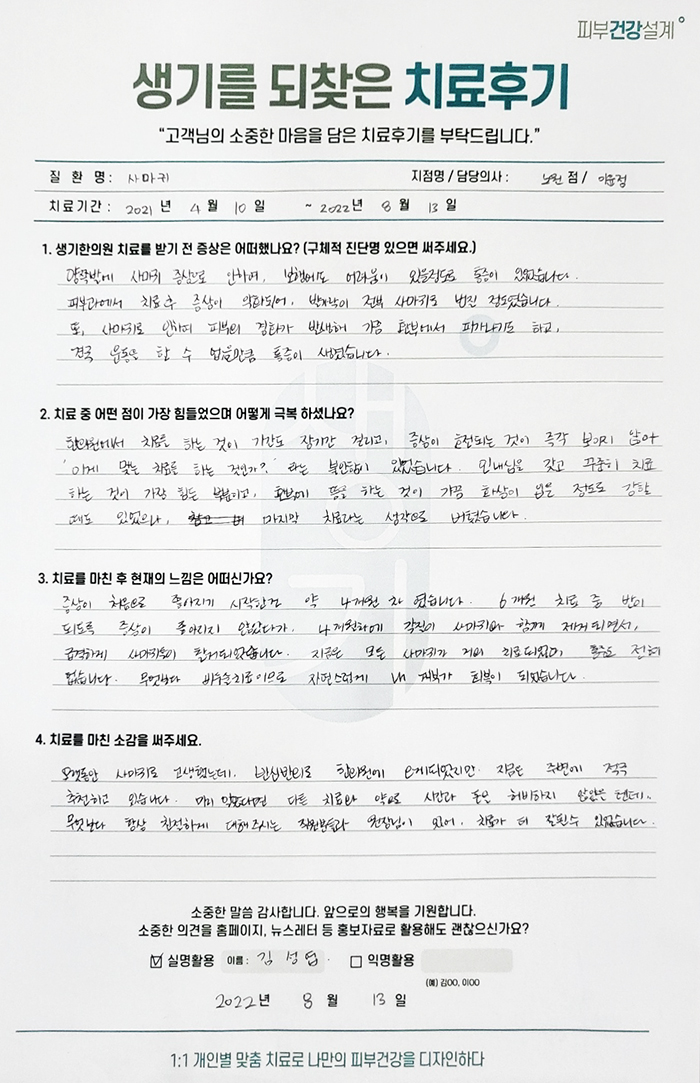 피부건강설계
생기를 되찾은 치료후기
"고객님의 소중한 마음을 담은 치료후기를 부탁드립니다."
질 환 명 : 사마귀 지점명 / 담당의사 : 노원 점 / 이윤정
치료기간 : 2021 년 4 월 10 일 ~ 2022 년 8 월 13 일
1. 생기한의원 치료를 받기 전 증상은 어떠했나요? (구체적 진단명 있으면 써주세요.)
양발바닥에 사마귀 증상으로 인하여, 보행에도 어려움이 있을정도로 통증이 있었습니다.
피부과에서 치료 후 증상이 악화되어, 발바닥이 전체 사마귀로 번진 정도였습니다.
또, 사마귀로 인하여 피부의 경화가 발생하여 가끔 환부에서 피가나기도 하고,
결국 운동은 할 수 없을만큼 통증이 심했습니다.
2. 치료 중 어떤 점이 가장 힘들었으며 어떻게 극복 하셨나요?
한의원에서 치료를 하는 것이 기간도 장기간 걸리고, 증상이 호전되는 것이 즉각 보이지 않아
'이게 맞는 치료를 하는 것인가?' 라는 불안함이 있었습니다. 인내심을 갖고 꾸준히 치료
하는 것이 가장 힘든 부분이고, 환부에 뜸을 하는 것이 가끔 화상이 입을 정도로 강할
때도 있었으나, 마지막 치료라는 생각으로 버텼습니다.
3. 치료를 마친 후 현재의 느낌은 어떠신가요?
증상이 처음으로 좋아지기 시작한건 약 4개월 차 였습니다. 6개월 치료 중 반이
되도록 증상이 좋아지지 않았다가, 4개월차에 각질이 사마귀와 함께 제거되면서,
급격하게 사마귀들이 탈거되었습니다. 지금은 모든 사마귀가 거의 치료되었고, 통증도 전혀
없습니다. 무엇보다 비수술치료이므로 자연스럽게 내 피부가 회복이 되었습니다.
4. 치료를 마친 소감을 써주세요.
오랫동안 사마귀로 고생했는데, 반신반의로 한의원에 오게되었지만 지금은 주변에 적극
추천하고 있습니다. 미리 알았다면 다른 치료와 약으로 시간과 돈은 허비하지 않았을 텐데..
무엇보다 항상 친절하게 대해주시는 직원분들과 원장님이 있어, 치료가 더 잘될수 있었습니다.
소중한 말씀 감사합니다. 앞으로의 행복을 기원합니다.
소중한 의견을 홈페이지, 뉴스레터 등 홍보자료로 활용해도 괜찮으신가요?
실명활용 이름 : 김성엽 익명활용
(예) 김OO, 이OO
2022 년 8 월 13 일
1:1 개인별 맞춤 치료로 나만의 피부건강을 디자인하다